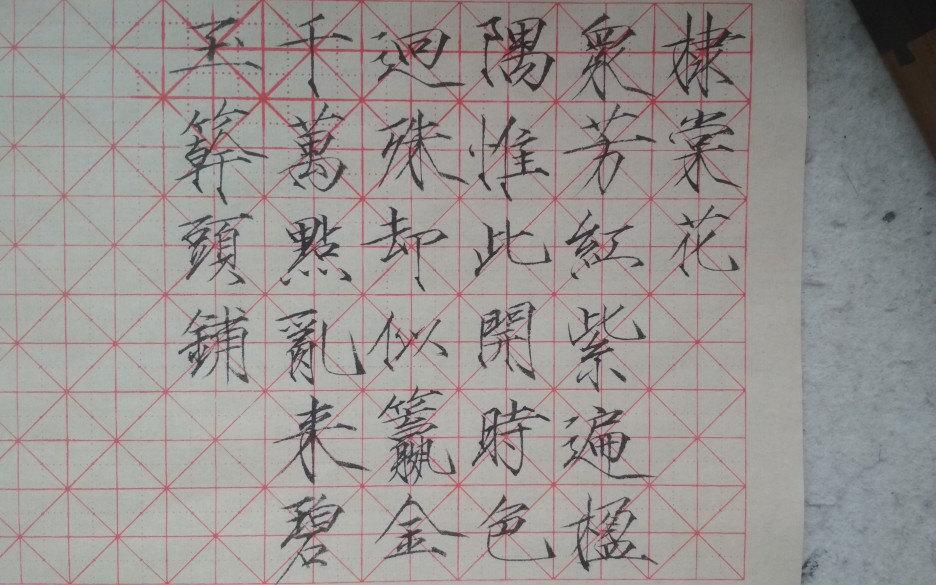 棣棠花
衆芳紅紫遍楹
隅惟此開時色
迥殊却似籯金
千萬點亂来碧
玉簳頭鋪